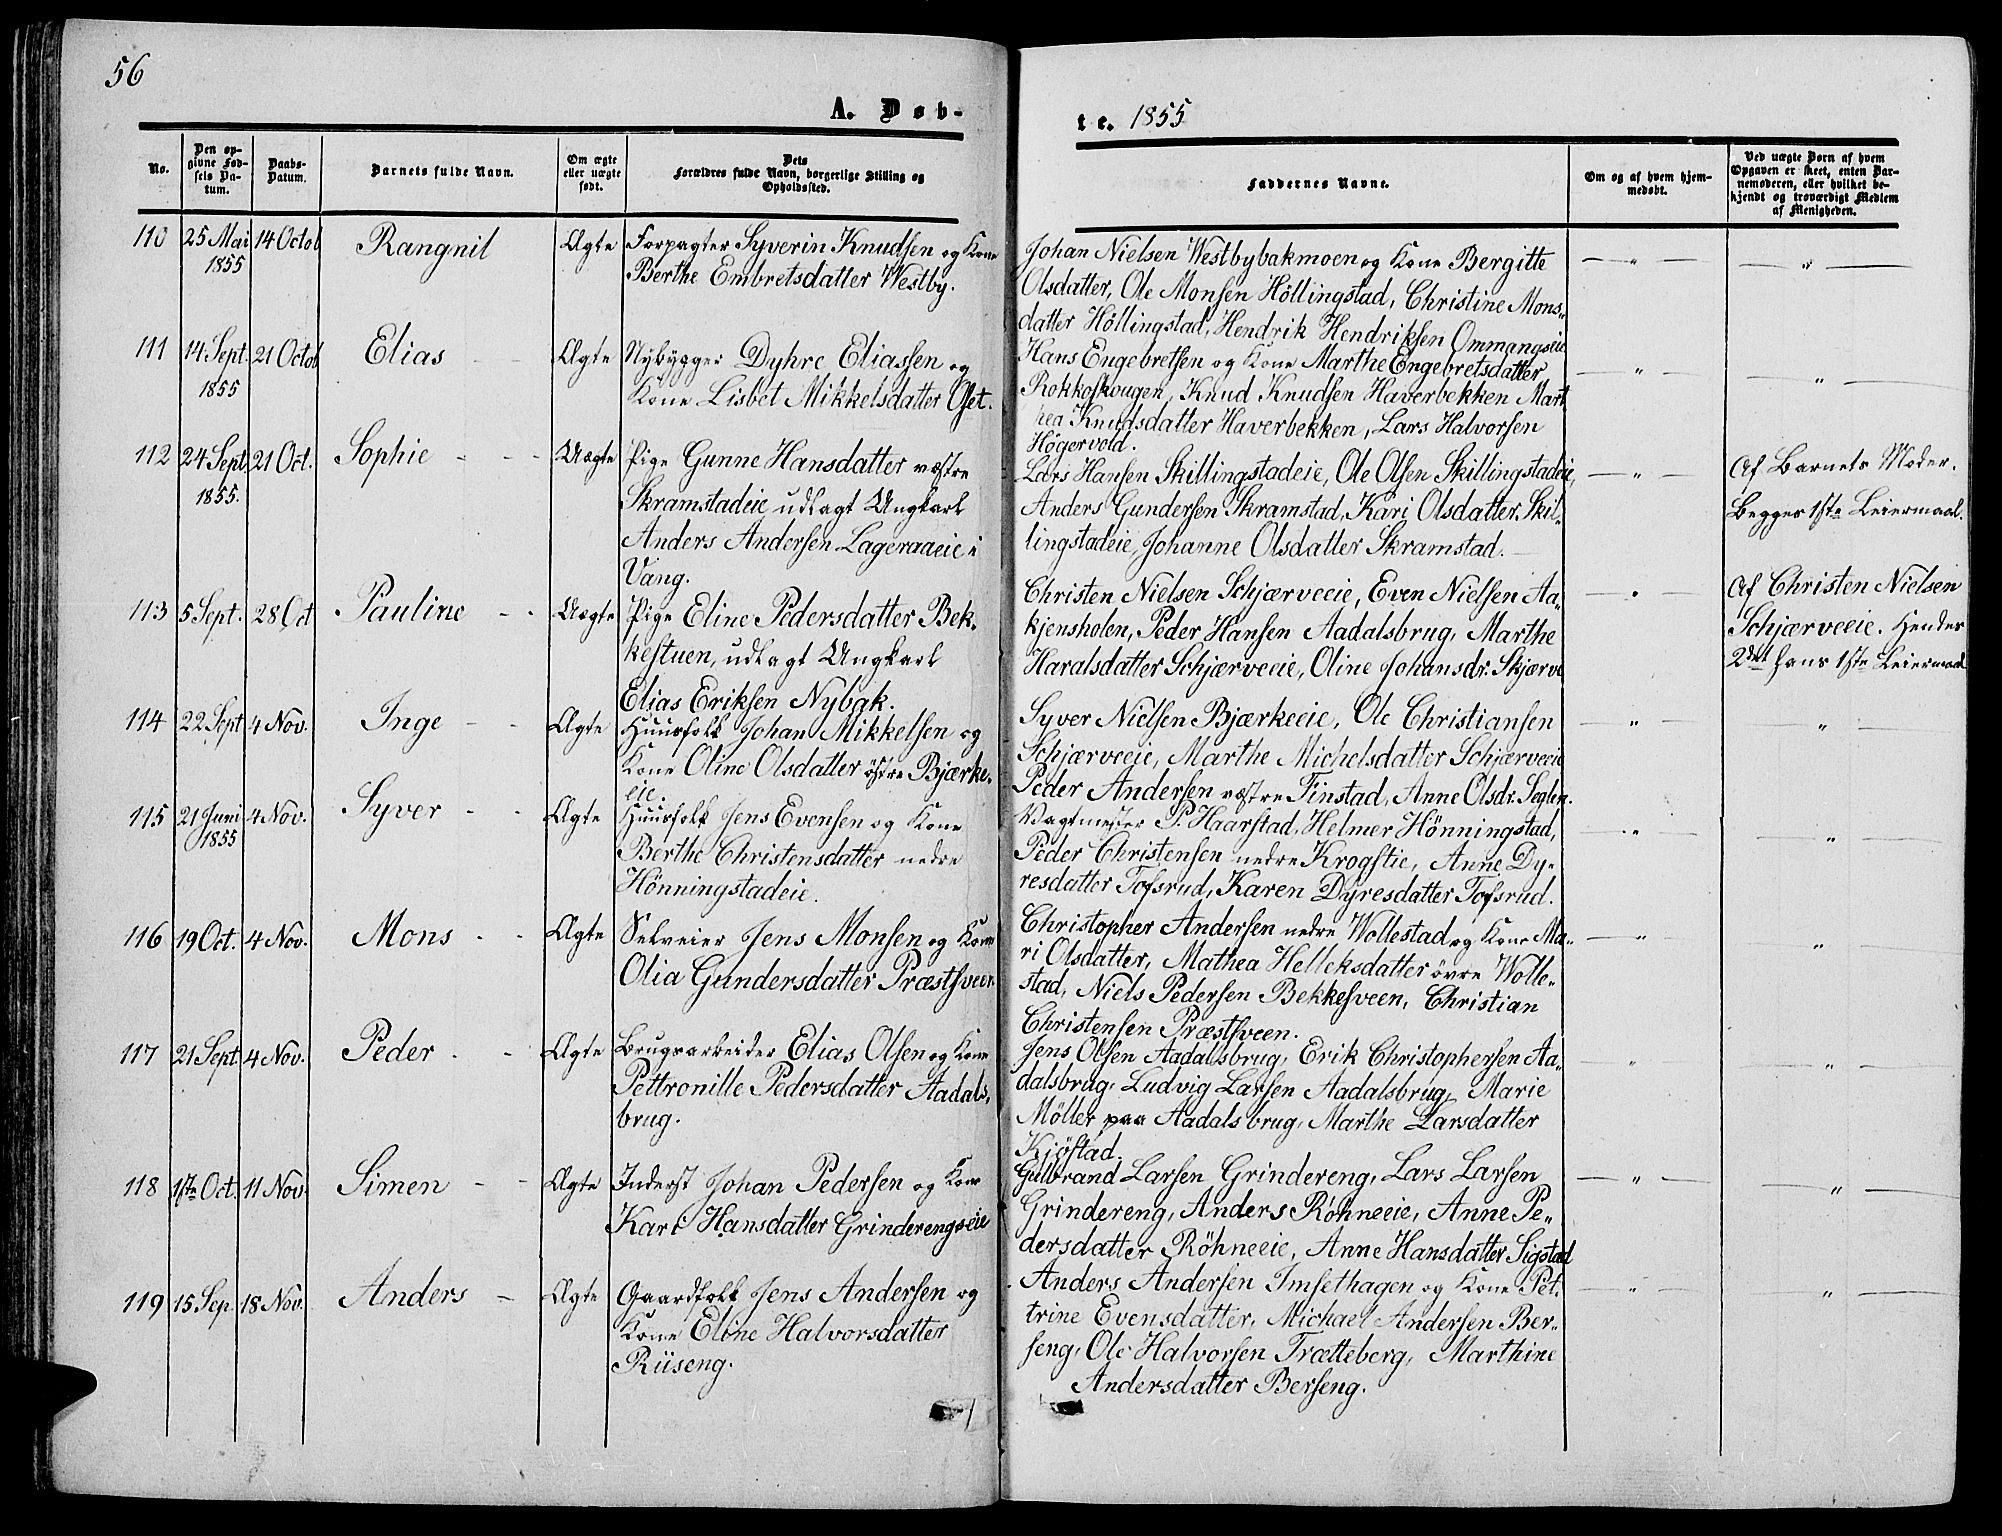 56
A. Døb-
te. 1855
No.
Den op-
givne Fød-
sels Da-
tum.
Daabs-
Datum.
Barnets fulde Navn.
Om ægte
eller uægte
født.
Dets
Forældres fulde Navn, borgerlige Stilling og
Opholdssted.
Faddernes Navne.
Om og af hvem hjem-
medøbt.
Ved uægte Børn af hvem
Opgaven er skeet, enten Bar-
nemoderen, eller hvilket be-
kjendt og troværdigt Medlem
af Menigheden.
110 25 Mai 1855 14 Octob Rangnil Ægte
Forpagter Syverin Knudsen og Kone
Berthe Embretsdatter Westby.
Johan Nielsen Westbybakmoen og Kone Bergitte
Olsdatter, Ole Monsen Höllingstad, Christine Mons-
datter Höllingstad, Hendrik Hendriksen Ommangseie
111 14 Sept. 1855 21 Octob Elias Ægte
Nybygger Dyhre Eliassen og
Kone Lisbet Mikkelsdatter Oset.
Hans Engebretsen og Kone Marthe Engebretsdatter
Rokkoskougen, Knud Knudsen Haverbekken Mart
hea Knudsdatter Haverbekken, Lars Halvorsen
Högervold.
112 24 Sept 1855. 21 Oct. Sophie Uægte
Pige Gunne Hansdatter væstre
Skramstadeie udlagt Ungkarl
Anders Andersen Lageraaeie i
Vang.
Lars Hansen Skillingstadeie, Ole Olsen Skillingstadeie,
Anders Gundersen Skramstad, Kari Olsdatter Skil-
lingstadeie, Johanne Olsdatter Skramstad.
Af Barnets Moder.
Begges 1ste Leiermaal.
113 5 Sept. 28 Oct Pauline Uægte
Pige Eline Pedersdatter Bek-
kestuen, udlagt Ungkarl
Elias Eriksen Nybak.
Christen Nielsen Schjærveeie, Even Nielsen Aa-
kjensholen, Peder Hansen Aadalsbrug, Marthe
Haralsdatter Schjærveeie, Oline Johansdr. Skjærve
Af Christen Nielsen
Schjærveeie. Hendes
2det hans 1ste Leiermaal
114 22 Sept 4 Nov. Inge Ægte
Huusfolk Johan Mikkelsen og
Kone Oline Olsdatter østre Bjærke-
eie.
Syver Nielsen Bjærkeeie, Ole Christiansen
Schjærveeie, Marthe Michelsdatter Schjærveeie
Peder Andersen væstre Finstad, Anne Olsdr. Seglen.
115 21 Juni 1855 4 Nov. Syver Ægte
Huusfolk Jens Evensen og Kone
Berthe Christensdatter nedre
Hönningstadeie.
Vagtmester P. Haarstad, Helmer Hönningstad,
Peder Christensen nedre Krogstie, Anne Dy-
resdatter Tofsrud, Karen Dyresdatter Tofsrud.
116 19 Oct. 4 Nov. Mons Ægte
Selveier Jens Monsen og Kone
Olia Gundersdatter Præstsveen
Christopher Andersen nedre Wollestad og Kone Ma-
ri Olsdatter, Mathea Helleksdatter övre Wolle-
stad, Niels Pedersen Bekkesveen, Christian
Christensen Præstsveen.
117 21 Sept 4 Nov. Peder Ægte
Brugsarbeider Elias Olsen og Kone
Pettronille Pedersdatter Aadals-
brug.
Jens Olsen Aadalsbrug, Erik Christophersen Aa-
dalsbrug, Ludvig Larsen Aadalsbrug, Marie
Möller paa Aadalsbrug, Marthe Larsdatter
Kjöstad.
118 1ste Oct. 11 Nov. Simen Ægte
Inderst Johan Pedersen og Kone
Kari Hansdatter Grinderengseie
Gulbrand Larsen Grindereng, Lars Larsen
Grindereng, Anders Röhneeie, Anne Pe-
dersdatter Röhneeie, Anne Hansdatter Sigstad
119 15 Sep. 18 Nov. Anders Ægte
Gaardfolk Jens Andersen og
Kone Eline Halvorsdatter
Riiseng.
Anders Andersen Imsethagen og Kone Pet-
trine Evensdatter, Michael Andersen Ber-
seng, Ole Halvorsen Trætteberg, Marthine
Andersdatter Berseng.